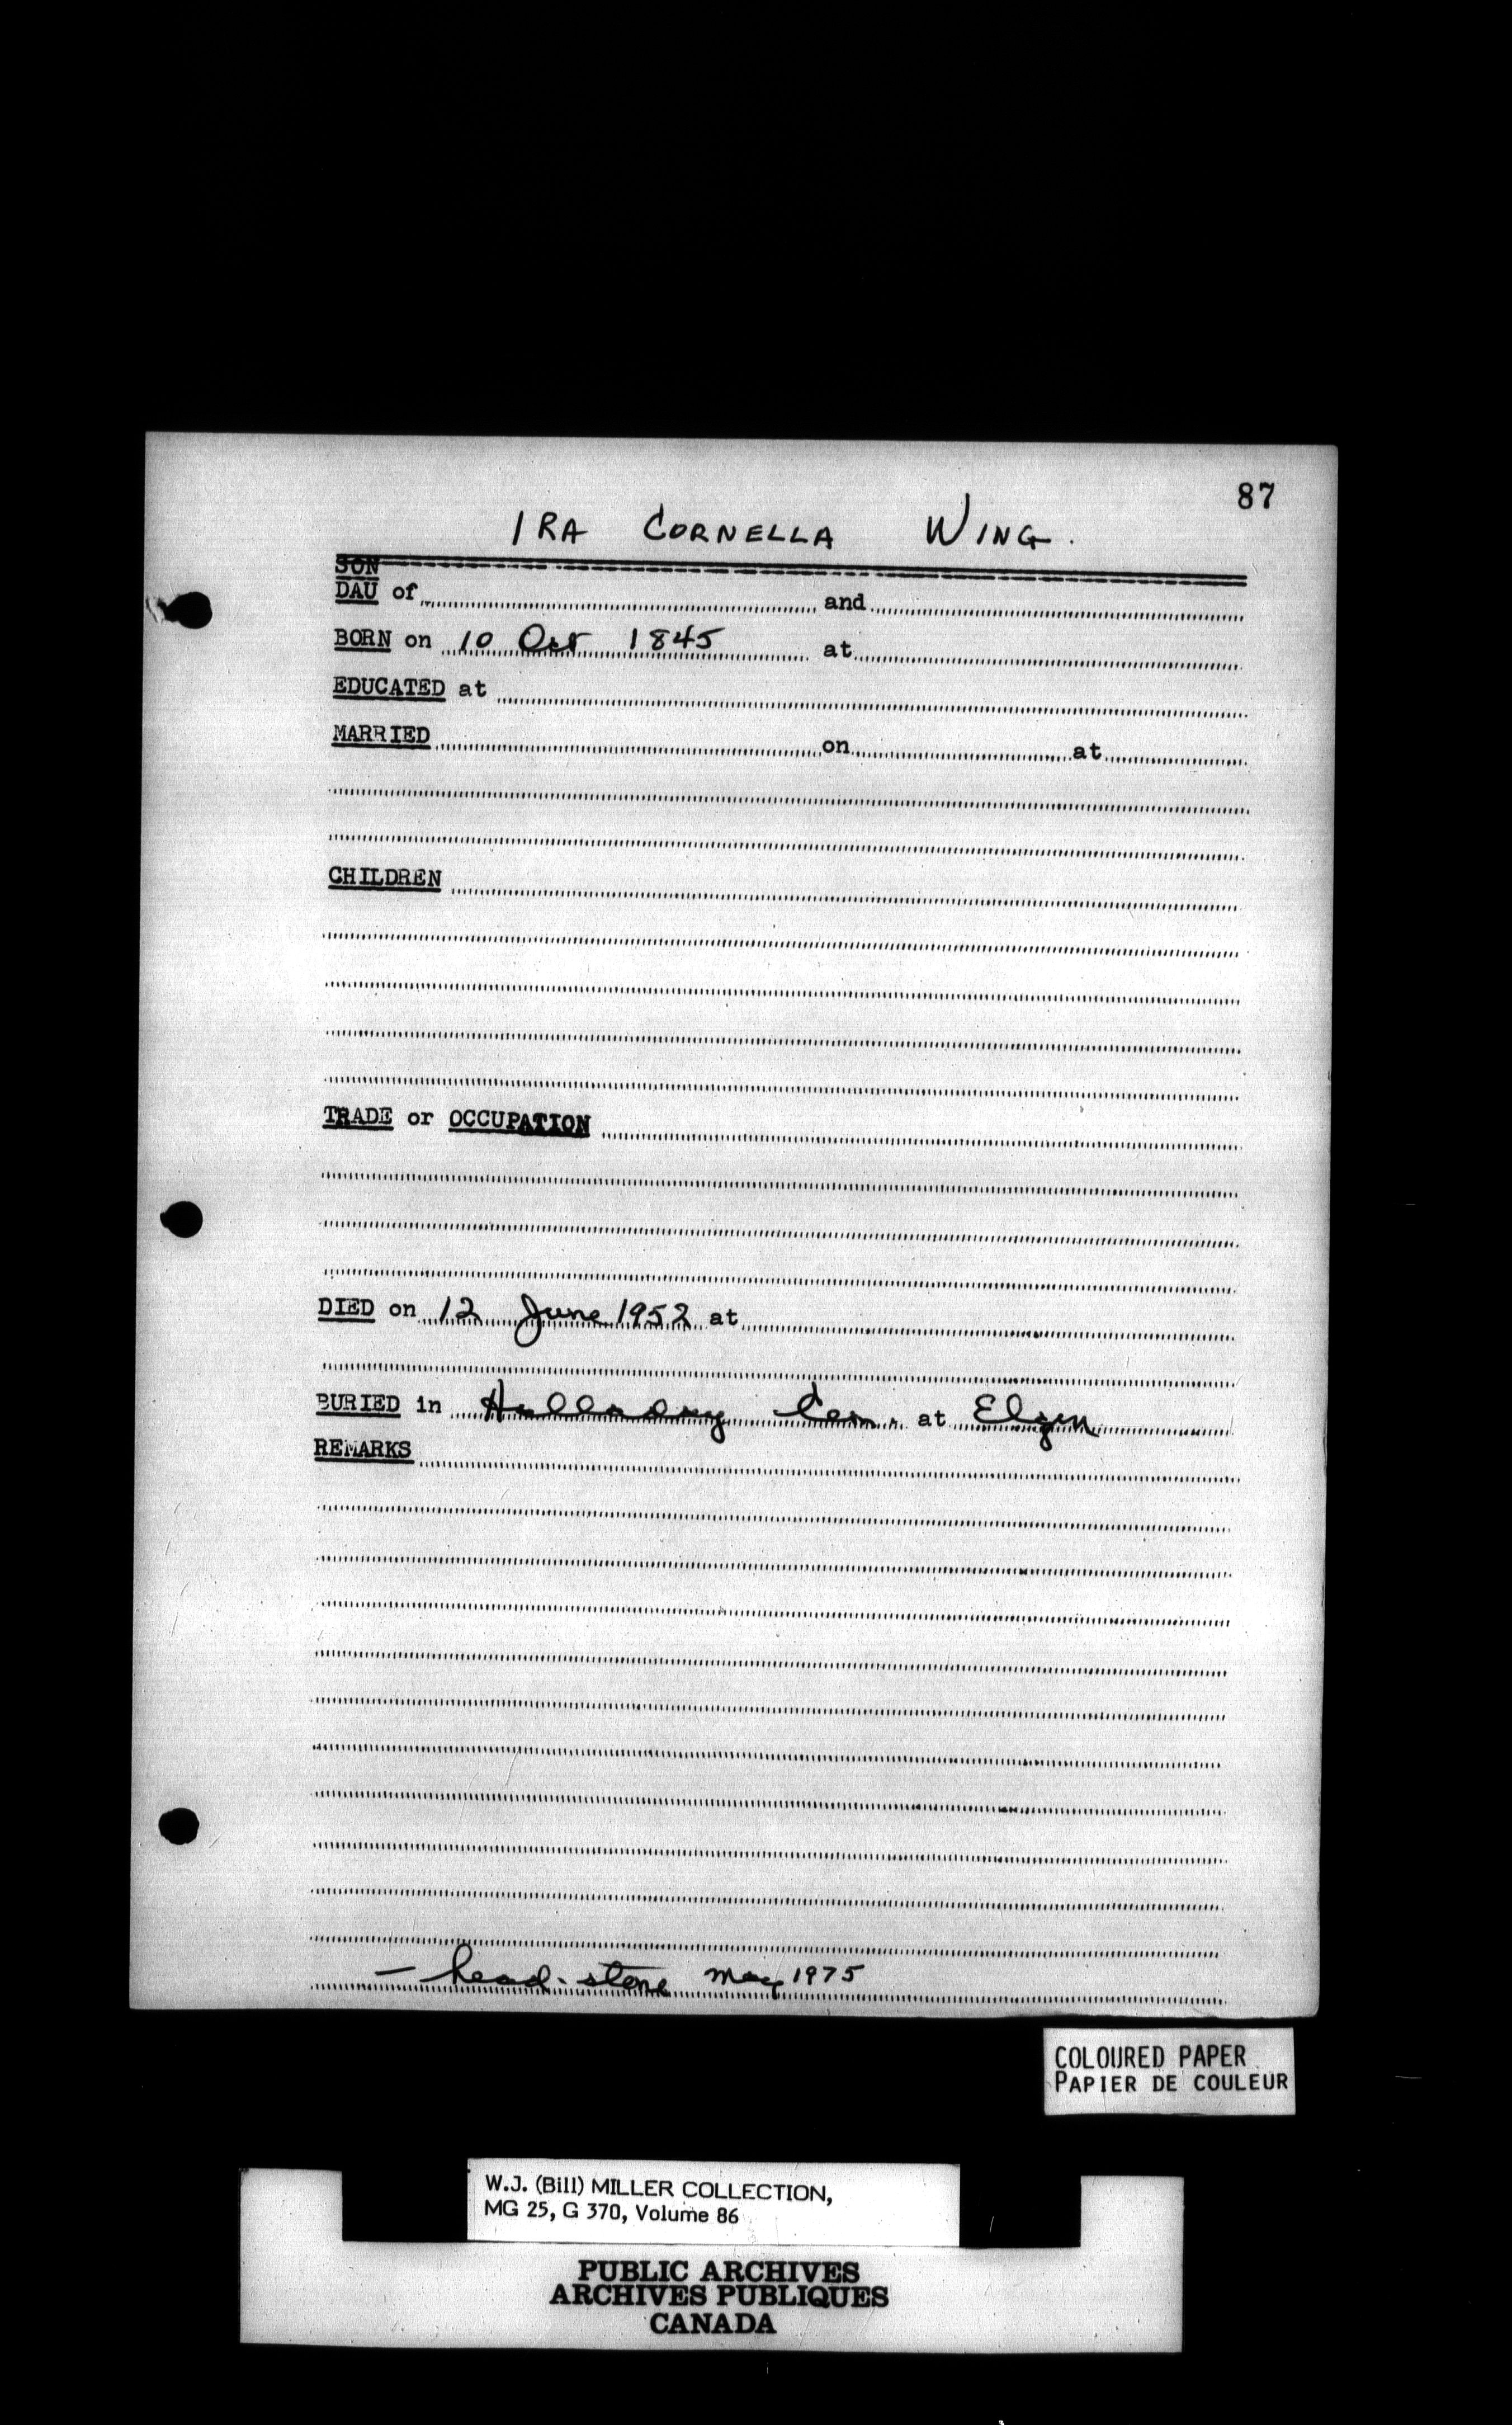 87
IRA CORNELLA WING.
SON
DAU of and
BORN on 10 Oct 1845 at
EDUCATED at
MARRIED on at
CHILDREN
TRADE or OCCUPATION
DIED on 12 June 1952 at
BURIED in Halladay Cem. at Elgin
REMARKS
- head-stone May 1975
COLOURED PAPER
PAPIER DE COULEUR
W.J. (Bill) MILLER COLLECTION,
MG 25, G 370, Volume 86
PUBLIC ARCHIVES
ARCHIVES PUBLIQUES
CANADA